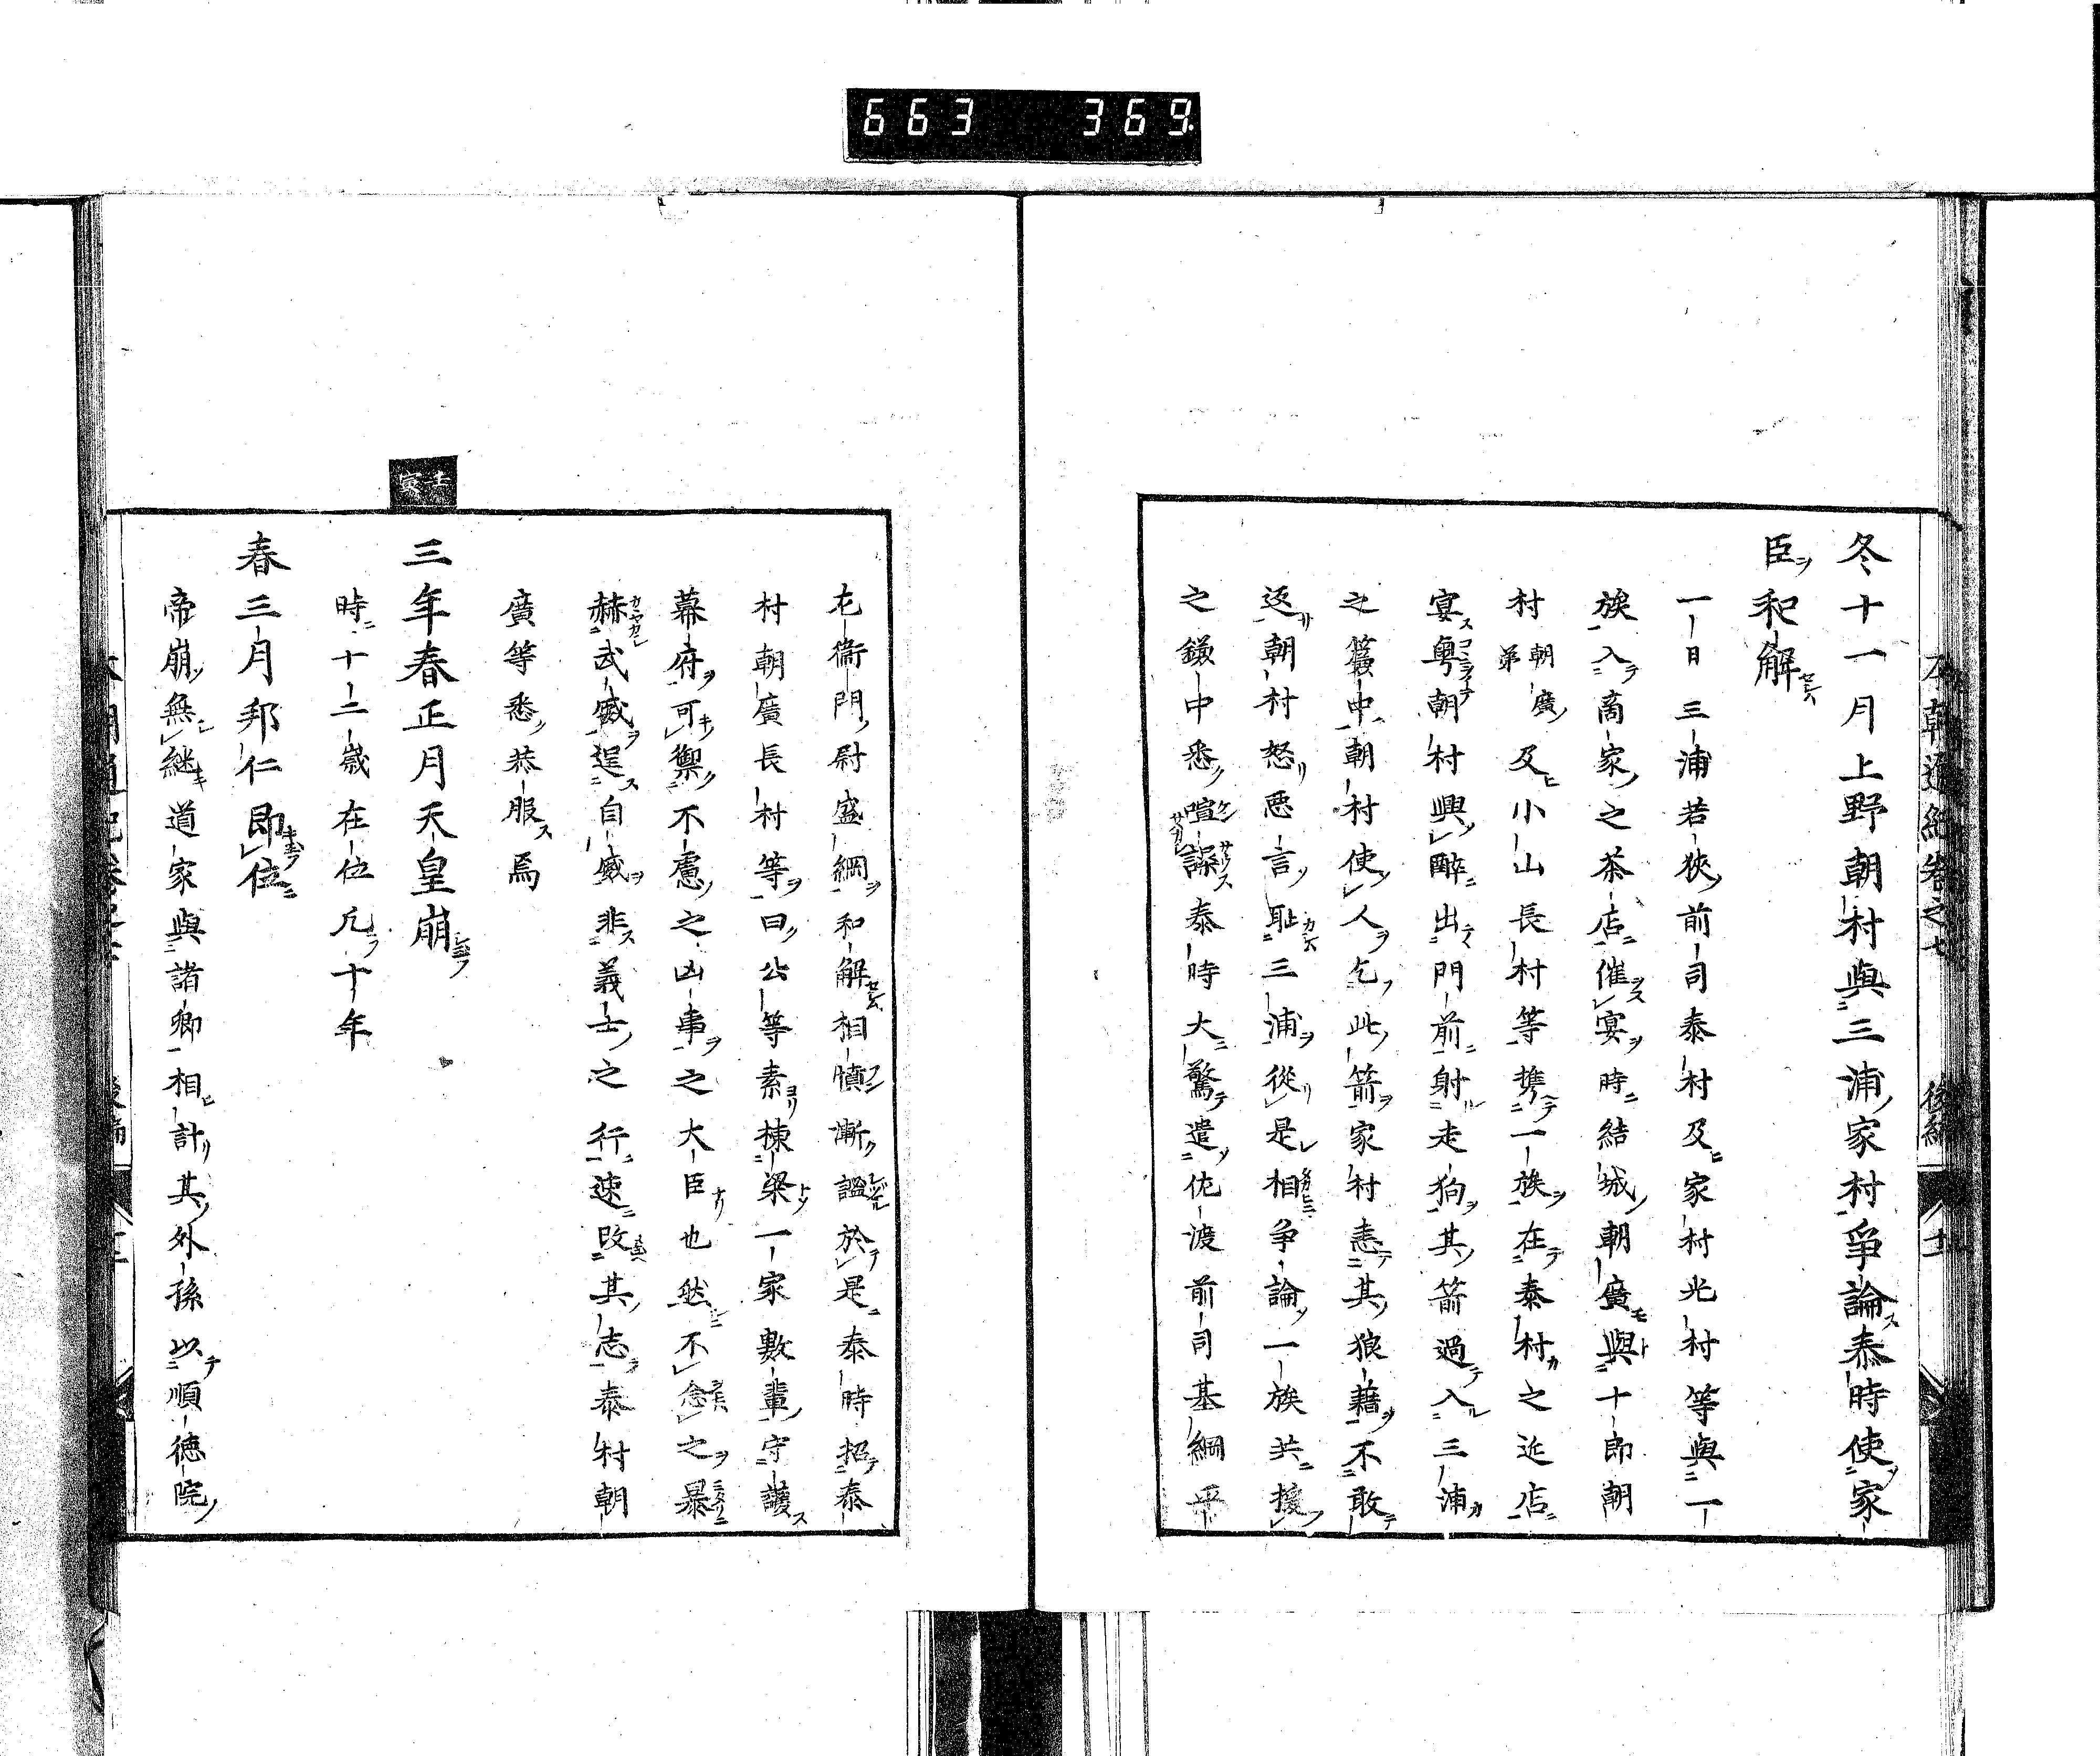 663 369
本朝通紀卷之七 後編
冬十一月上野朝村與三浦家村爭論泰時使家
臣和解
一日三浦若狹前司泰村及家村光村等與一
族入商家之茶店催宴時結城朝廣與十郎朝
村朝廣弟及小山長村等携一族在泰村之近店
宴粤朝村興醉出門前射走狗其箭過入三浦
之簾中朝村使人乞此箭家村恚其狼藉不敢
返朝村怒惡言恥三浦從是相爭論一族共援
之鎌中悉喧譟泰時大驚遣佐渡前司基綱平
左衞門尉盛綱和解相憤漸謐於是泰時招泰
村朝廣長村等曰公等素棟梁一家數輩守護
幕府可禦不慮之凶事之大臣也然不念之暴
赫武威逞自威非義士之行速改其志泰村朝
廣等悉恭服焉
壬寅
三年春正月天皇崩
時十二歲在位凡十年
春三月邦仁即位
帝崩無継道家與諸卿相計其外孫以順德院